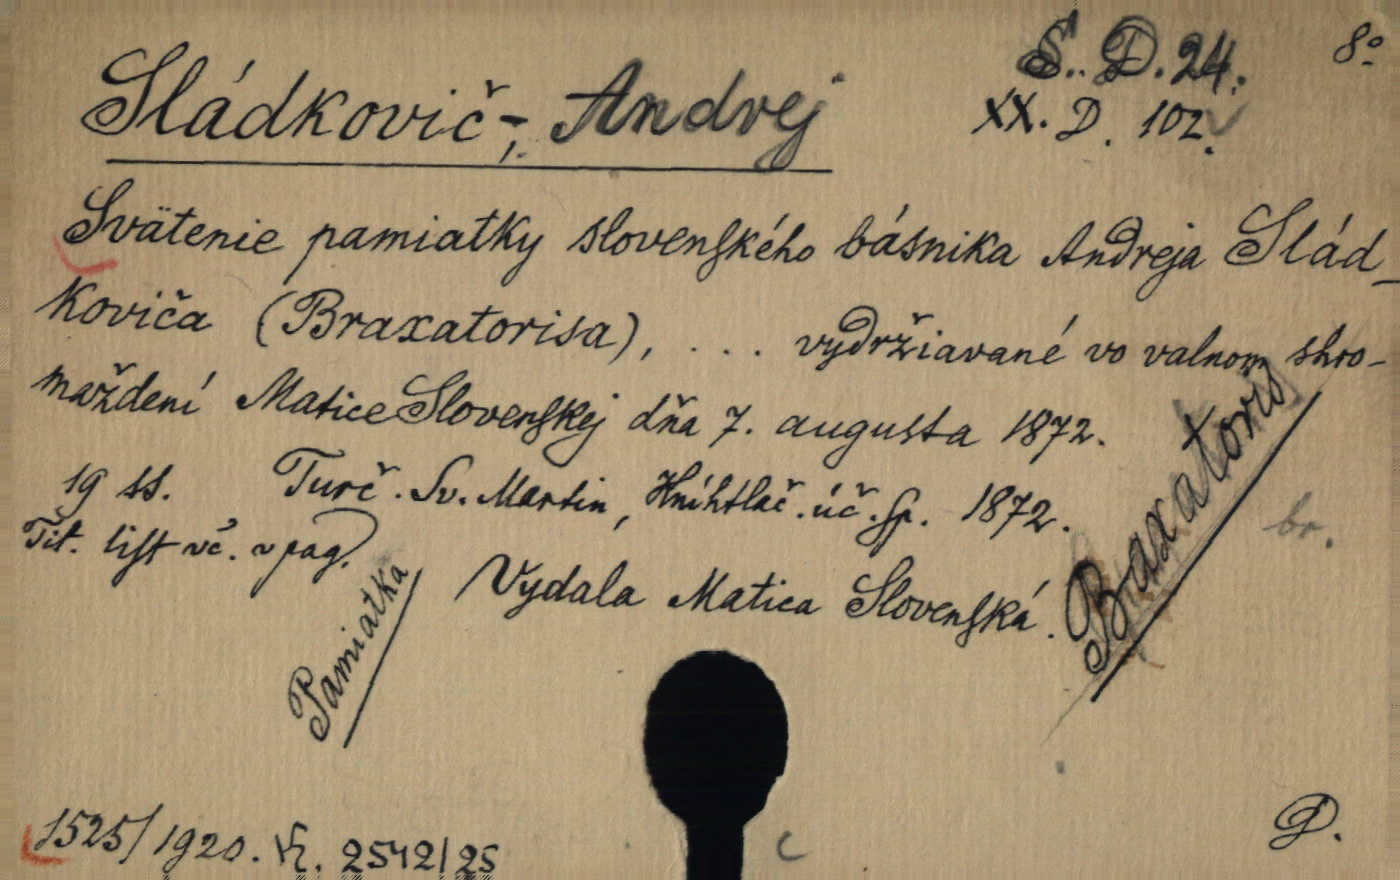 S. D. 24. 8º
Sládkovič, Andrej
XX. D. 102.
Svätenie pamiatky slovenského básnika Andreja Slád-
koviča (Braxatorisa), ... vydržiavané vo valnom shro-
maždení Matice Slovenskej dňa 7. augusta 1872.
19 ss. Turč. Sv. Martin, Kníhtlač. úč. sp. 1872.
Tit. list vč. v pag.
Vydala Matica Slovenská.
Braxatoris
br.
Pamiatka
D.
1525/1920. K. 2542/25